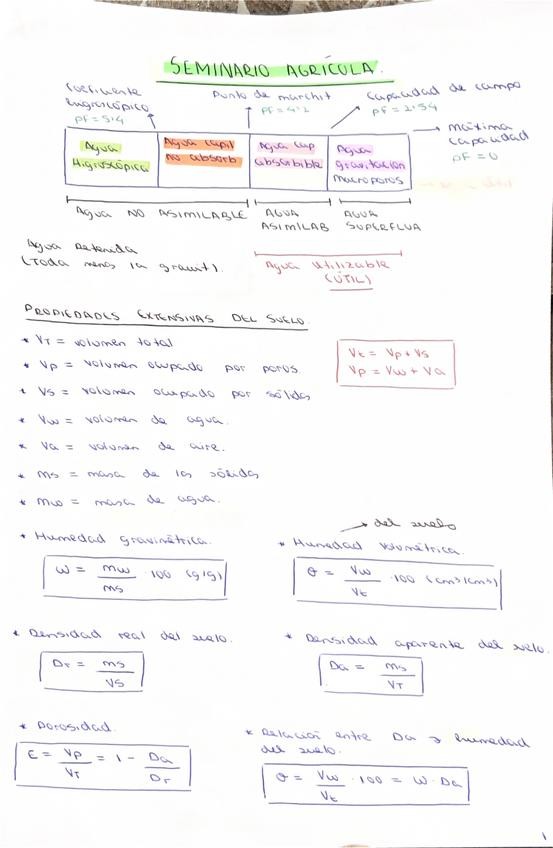 SEMINARIO AGRÍCOLA.
Coeficiente higroscópico pF = 5'4
Punto de marchit pF = 4'2
Capacidad de campo pF = 2'54
máxima capacidad pF = 0
Agua Higroscópica
Agua Capil NO absorb
Agua Cap absorbible
Agua gravitación macroporos
Agua NO ASIMILABLE
AGUA ASIMILAB
AGUA SUPERFLUA
Agua Retenida
(Toda menos la gravit).
Agua utilizable
(ÚTIL)
PROPIEDADES EXTENSIVAS DEL SUELO.
* VT = volumen total
* Vp = volumen ocupado por poros.
* Vs = volumen ocupado por sólidos
* Vw = volumen de agua.
* Va = volumen de aire.
* ms = masa de los sólidos
* mw = masa de agua.
Vt = Vp + Vs
Vp = Vw + Va
* Humedad gravimétrica.
W = mw/ms · 100 (g/g)
→ del suelo
* Humedad volumétrica.
θ = Vw/Vt · 100 (cm³/cm³)
* Densidad real del suelo.
Dr = ms/Vs
* Densidad aparente del suelo.
Da = ms/VT
* Porosidad.
E = Vp/VT = 1 - Da/Dr
* Relación entre Da y humedad
del suelo.
θ = Vw/Vt · 100 = W · Da
1